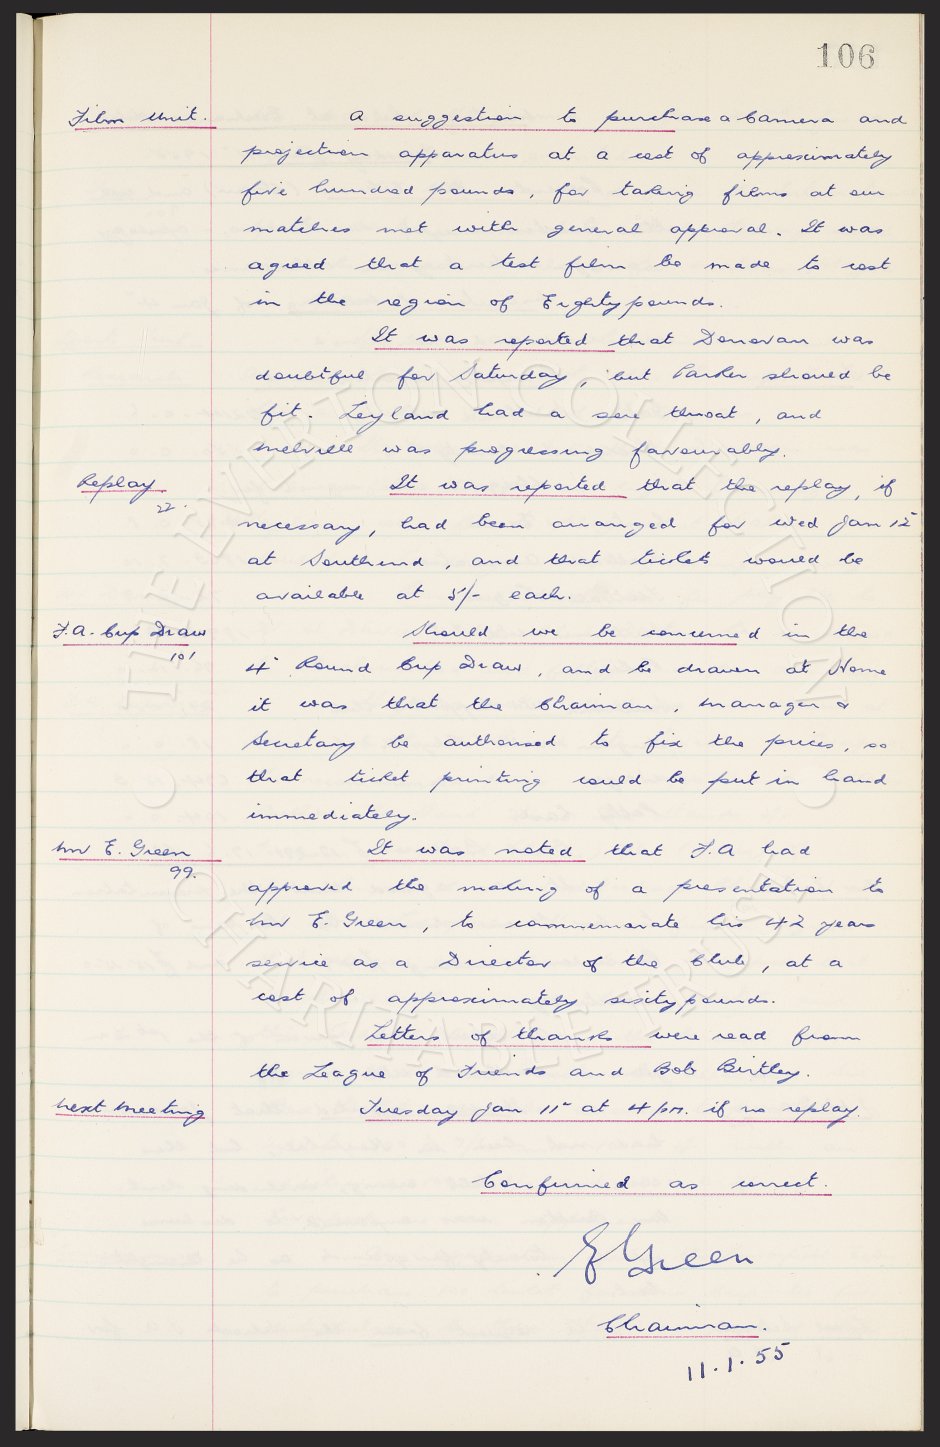 106
Film Unit. A suggestion to purchase a Camera and
projection apparatus at a cost of approximately
five hundred pounds, for taking films at our
matches met with general approval. It was
agreed that a test film be made to cost
in the region of Eighty pounds.
It was reported that Donovan was
doubtful for Saturday, but Parker should be
fit. Leyland had a sore throat, and
Melville was progressing favourably.
Replay It was reported that the replay, if
22.
necessary, had been arranged for Wed Jan 12
at Southend, and that tickets would be
available at 5/- each.
F.A. Cup Draw Should we be concerned in the
101
4 Round Cup Draw, and be drawn at Home
it was that the Chairman, Manager &
Secretary be authorised to fix the prices, so
that ticket printing could be put in hand
immediately.
Mr E. Green It was noted that F.A had
99.
approved the making of a presentation to
Mr E. Green, to commemorate his 42 years
service as a Director of the Club, at a
cost of approximately sixty pounds.
Letters of thanks were read from
the League of Friends and Bob Birtley.
Next Meeting Tuesday Jan 11 at 4 pm. if no replay.
Confirmed as correct.
E Green
Chairman.
11.1.55
© THE EVERTON COLLECTION
CHARITABLE TRUST